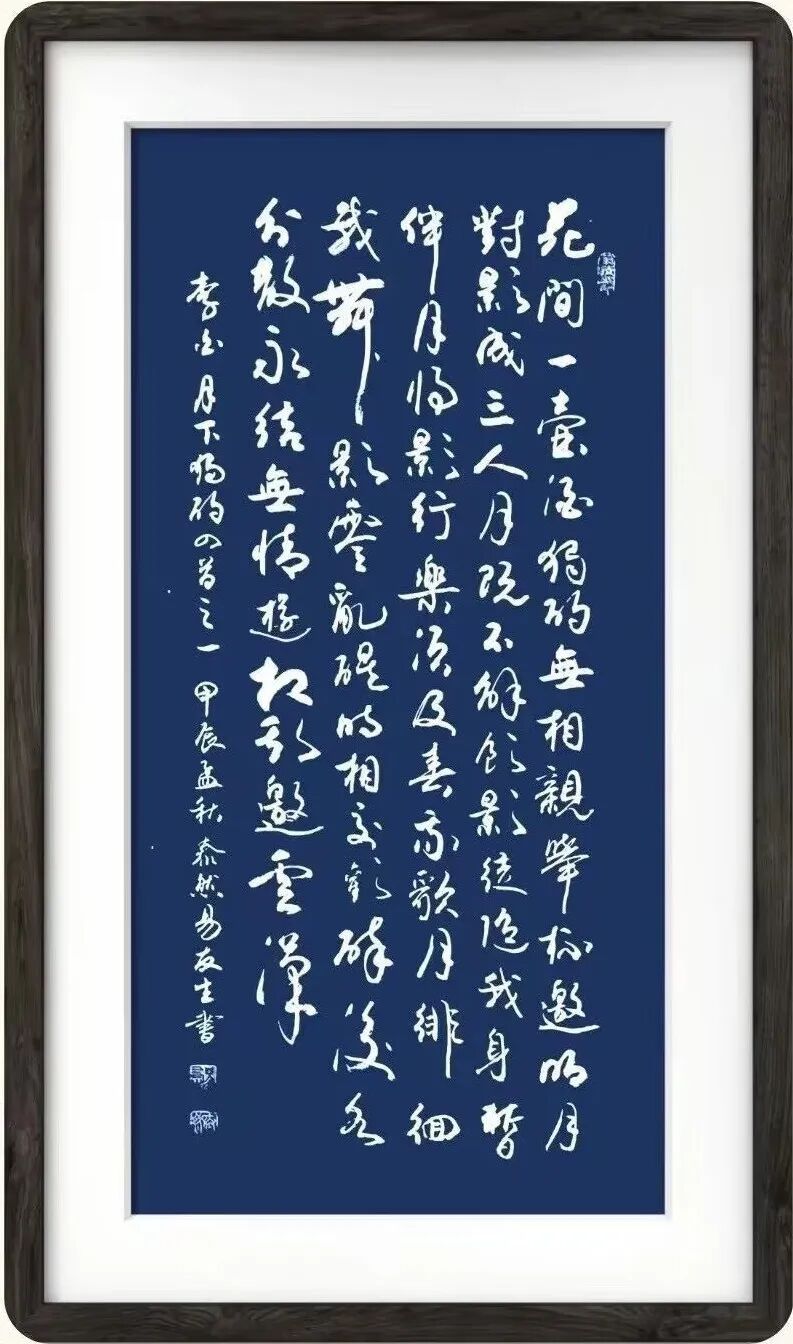 花間一壺酒獨酌無相親舉杯邀明月
對影成三人月既不解飲影徒隨我身暫
伴月將影行樂須及春我歌月徘徊
我舞影零亂醒時相交歡醉後各
分散永結無情遊相期邀雲漢
李白月下獨酌四首之一 甲辰孟秋泰然易友生書